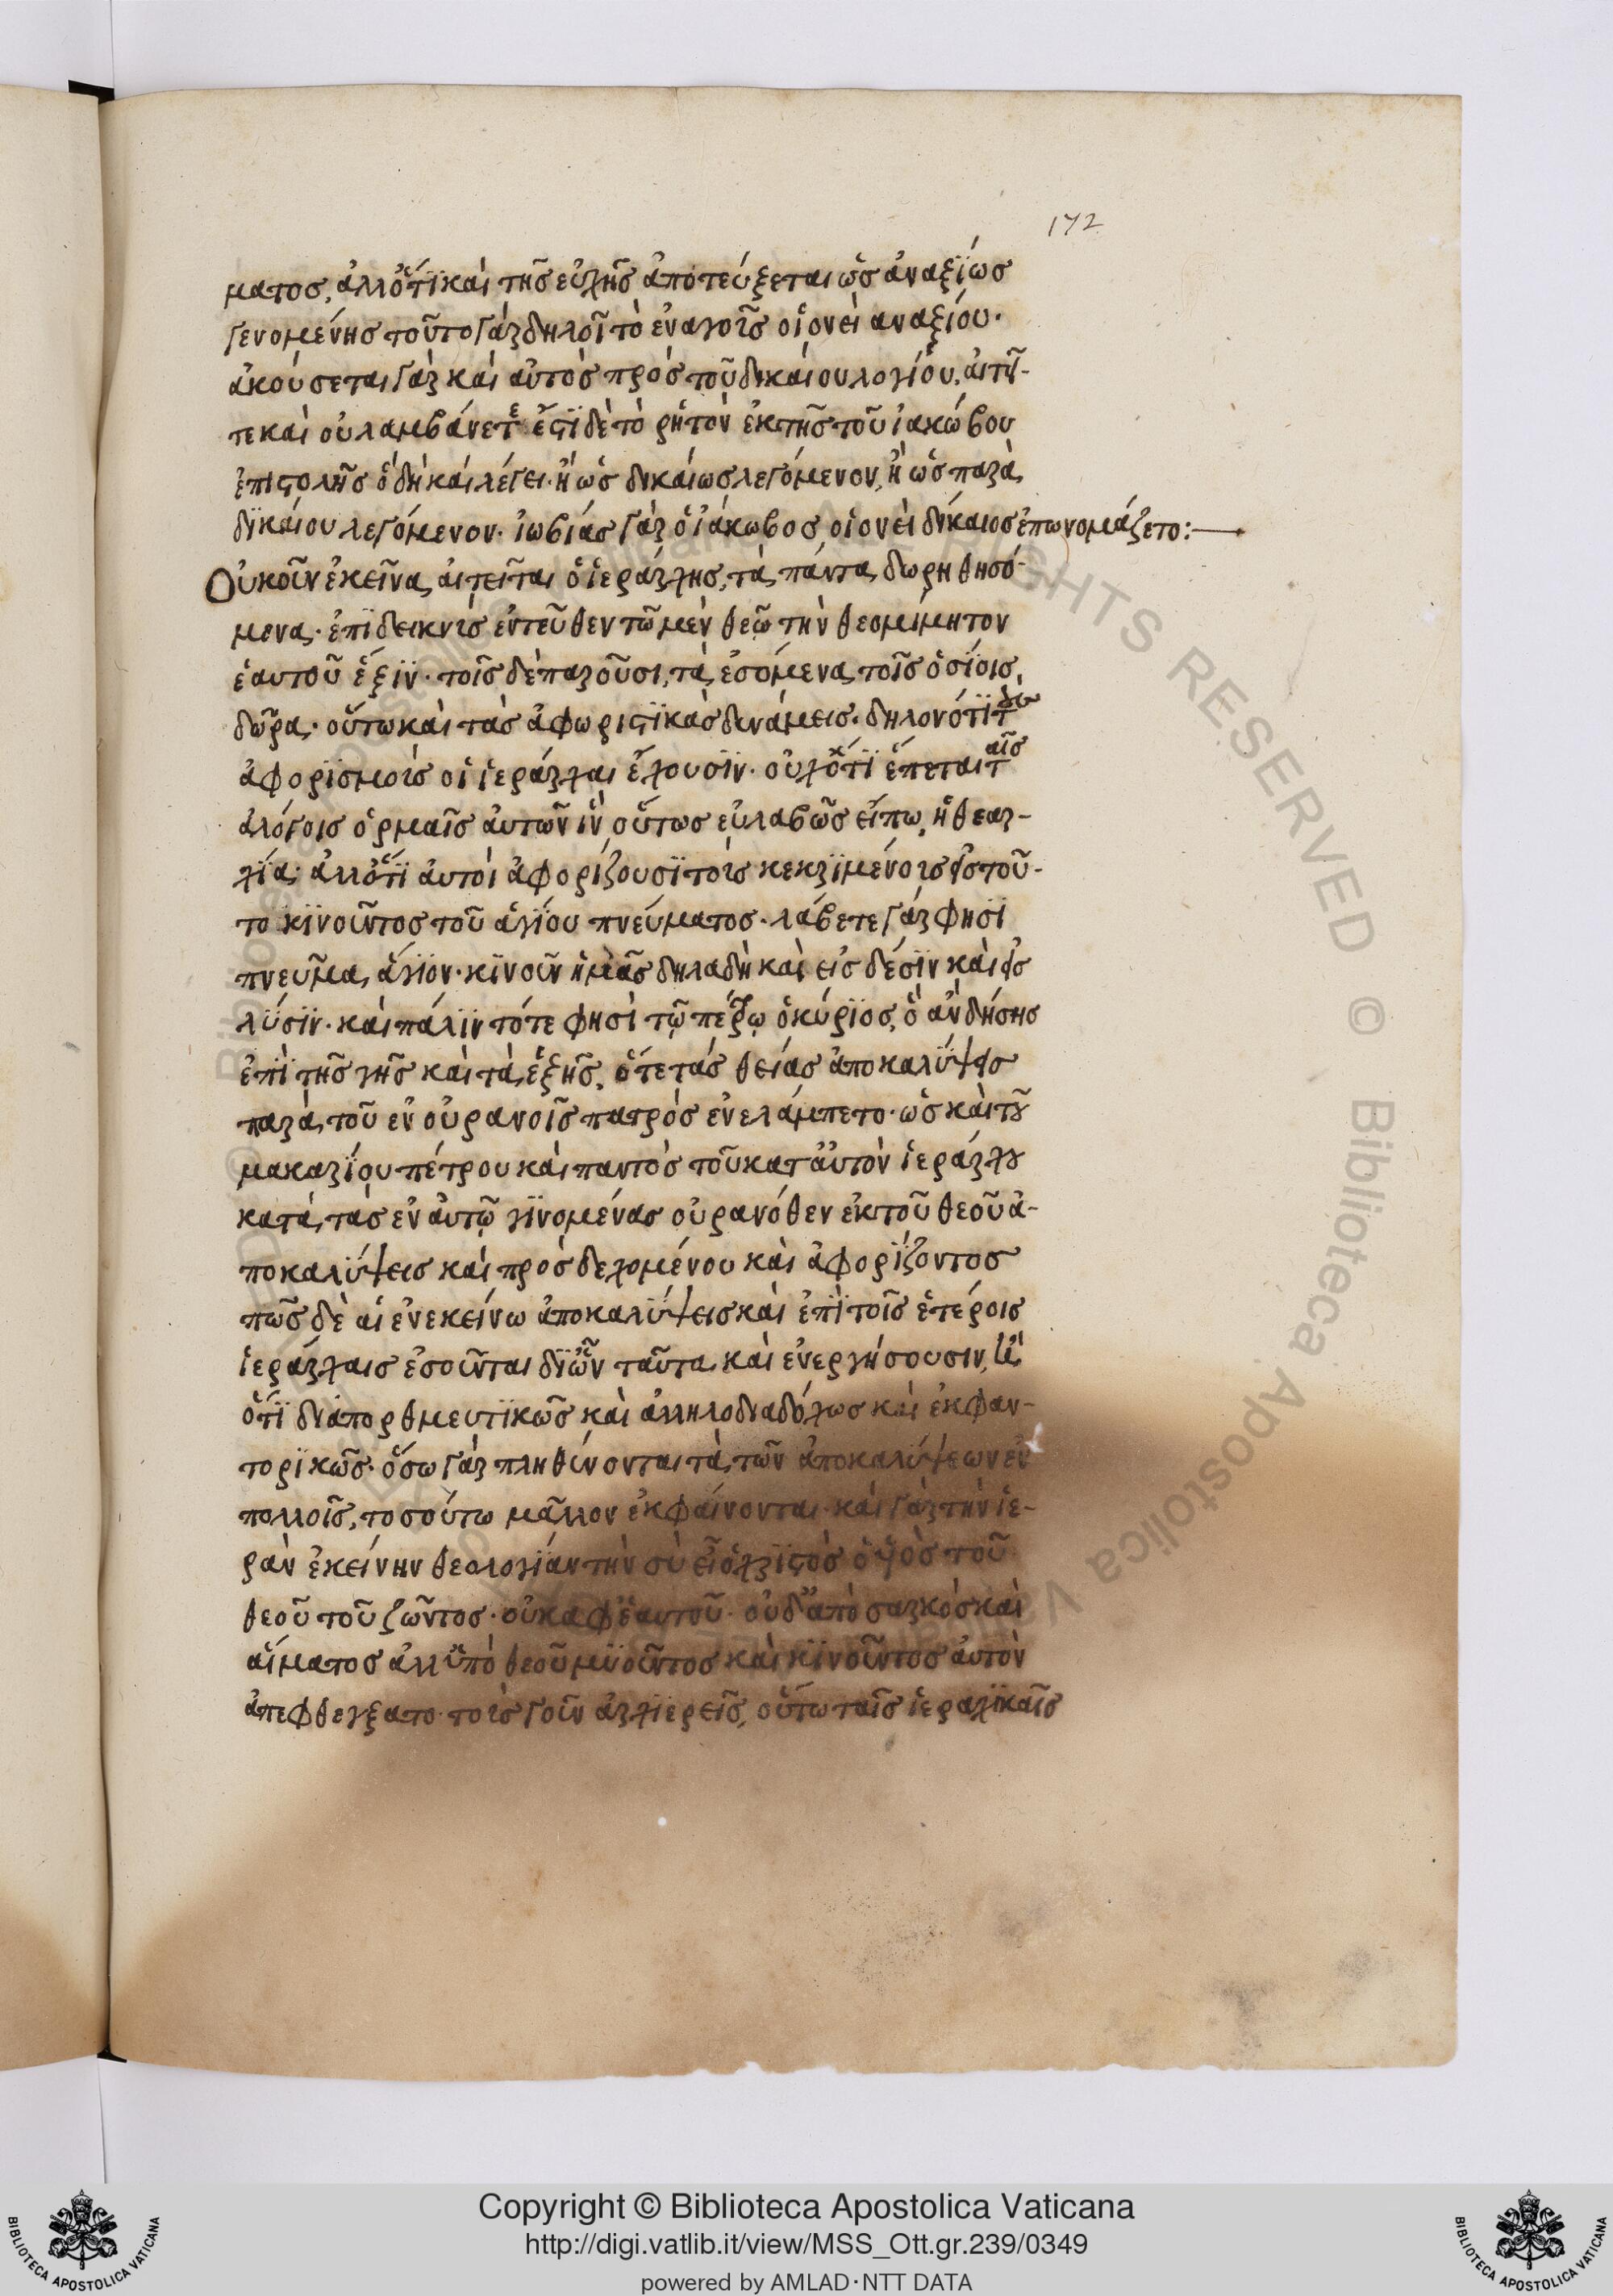 172
ματος, ἀλλ' ὅτι καὶ τῆς εὐχῆς ἀποτεύξεται ὡς ἀναξίως
γενομένης τοῦτο γὰρ δηλοῖ τὸ ἐναγοῦς οἱονεὶ αναξίου·
ἀκούσεται γὰρ καὶ αὐτὸς πρὸς τοῦ δικαίου λογίου, αἰτεῖ-
τε καὶ οὐ λαμβάνετε ἔστι δὲ τὸ ῥητὸν ἐκ τῆς τοῦ ἰακώβου
ἐπιστολῆς ὃ δὴ καὶ λέγει· ἢ ὡς δικαίως λεγόμενον, ἢ ὡς παρὰ
δικαίου λεγόμενον· ἰωβίας γὰρ ὁ ἰάκωβος, οἱονεὶ δίκαιος ἐπωνομάζετο:—
Οὐκοῦν ἐκεῖνα αἰτεῖται ὁ ἱεράρχης, τὰ πάντα δωρηθησό-
μενα· ἐπιδεικνὺς ἐντεῦθεν τῶ μὲν θεῶ τὴν θεομίμητον
ἑαυτοῦ ἕξιν· τοῖς δὲ παροῦσι, τὰ ἐσόμενα τοῖς ὁσίοις
δῶρα· οὕτω καὶ τὰς ἀφωριστικὰς δυνάμεις· δηλονότι τοὺς
ἀφορισμοὺς οἱ ἱεράρχαι ἔχουσιν· οὐχ ὅτι ἕπεται ταῖς
ἀλόγοις ὁρμαῖς αὐτῶν ἵν' οὕτως εὐλαβῶς εἴπω, ἡ θεαρ-
χία· ἀλλ' ὅτι αὐτοὶ ἀφορίζουσι τοὺς κεκριμένους εἰς τοῦ-
το κινοῦντος τοῦ ἁγίου πνεύματος· λάβετε γὰρ φησὶ
πνεῦμα ἅγιον· κινοῦν ἡμᾶς δηλαδὴ καὶ εἰς δέσιν καὶ εἰς
λύσιν· καὶ πάλιν τότε φησὶ τῷ πέτρῳ ὁ κύριος, ὃ ἂν δήσης
ἐπὶ τῆς γῆς καὶ τὰ ἑξῆς, ὅτε τὰς θείας ἀποκαλύψεις
παρὰ τοῦ ἐν οὐρανοῖς πατρὸς ἐνελάμπετο· ὡς καὶ τοῦ
μακαρίου πέτρου καὶ παντὸς τοῦ κατ' αὐτὸν ἱεράρχου
κατὰ τὰς ἐν αὐτῷ γινομένας οὐρανόθεν ἐκ τοῦ θεοῦ ἀ-
ποκαλύψεις καὶ προσδεχομένου καὶ ἀφορίζοντος
πῶς δὲ αἱ ἐν ἐκείνω ἀποκαλύψεις καὶ ἐπὶ τοῖς ἑτέροις
ἱεράρχαις ἐσοῦνται δι' ὧν ταῦτα καὶ ἐνεργήσουσιν,
ὅτι διαπορθμευτικῶς καὶ ἀλληλοδιαδόχως καὶ ἐκφαν-
τορικῶς· ὅσω γὰρ πληθύνονται τὰ τῶν ἀποκαλύψεων ἐν
πολλοῖς, τοσούτω μᾶλλον ἐκφαίνονται· καὶ γὰρ τὴν ἱε-
ρὰν ἐκείνην θεολογίαν τὴν σὺ εἶ ὁ χριστὸς ὁ υἱὸς τοῦ
θεοῦ τοῦ ζῶντος· οὐκ αφ' ἑαυτοῦ· οὐδ' ἀπὸ σαρκὸς καὶ
αἵματος ἀλλ' ὑπὸ θεοῦ μυοῦντος καὶ κινοῦντος αὐτὸν
ἀπεφθέγξατο· τοὺς γοῦν ἀρχιερεῖς, οὕτω ταῖς ἱεραχικαῖς
Copyright © Biblioteca Apostolica Vaticana
http://digi.vatlib.it/view/MSS_Ott.gr.239/0349
powered by AMLAD·NTT DATA
BIBLIOTECA APOSTOLICA VATICANA
BIBLIOTECA APOSTOLICA VATICANA